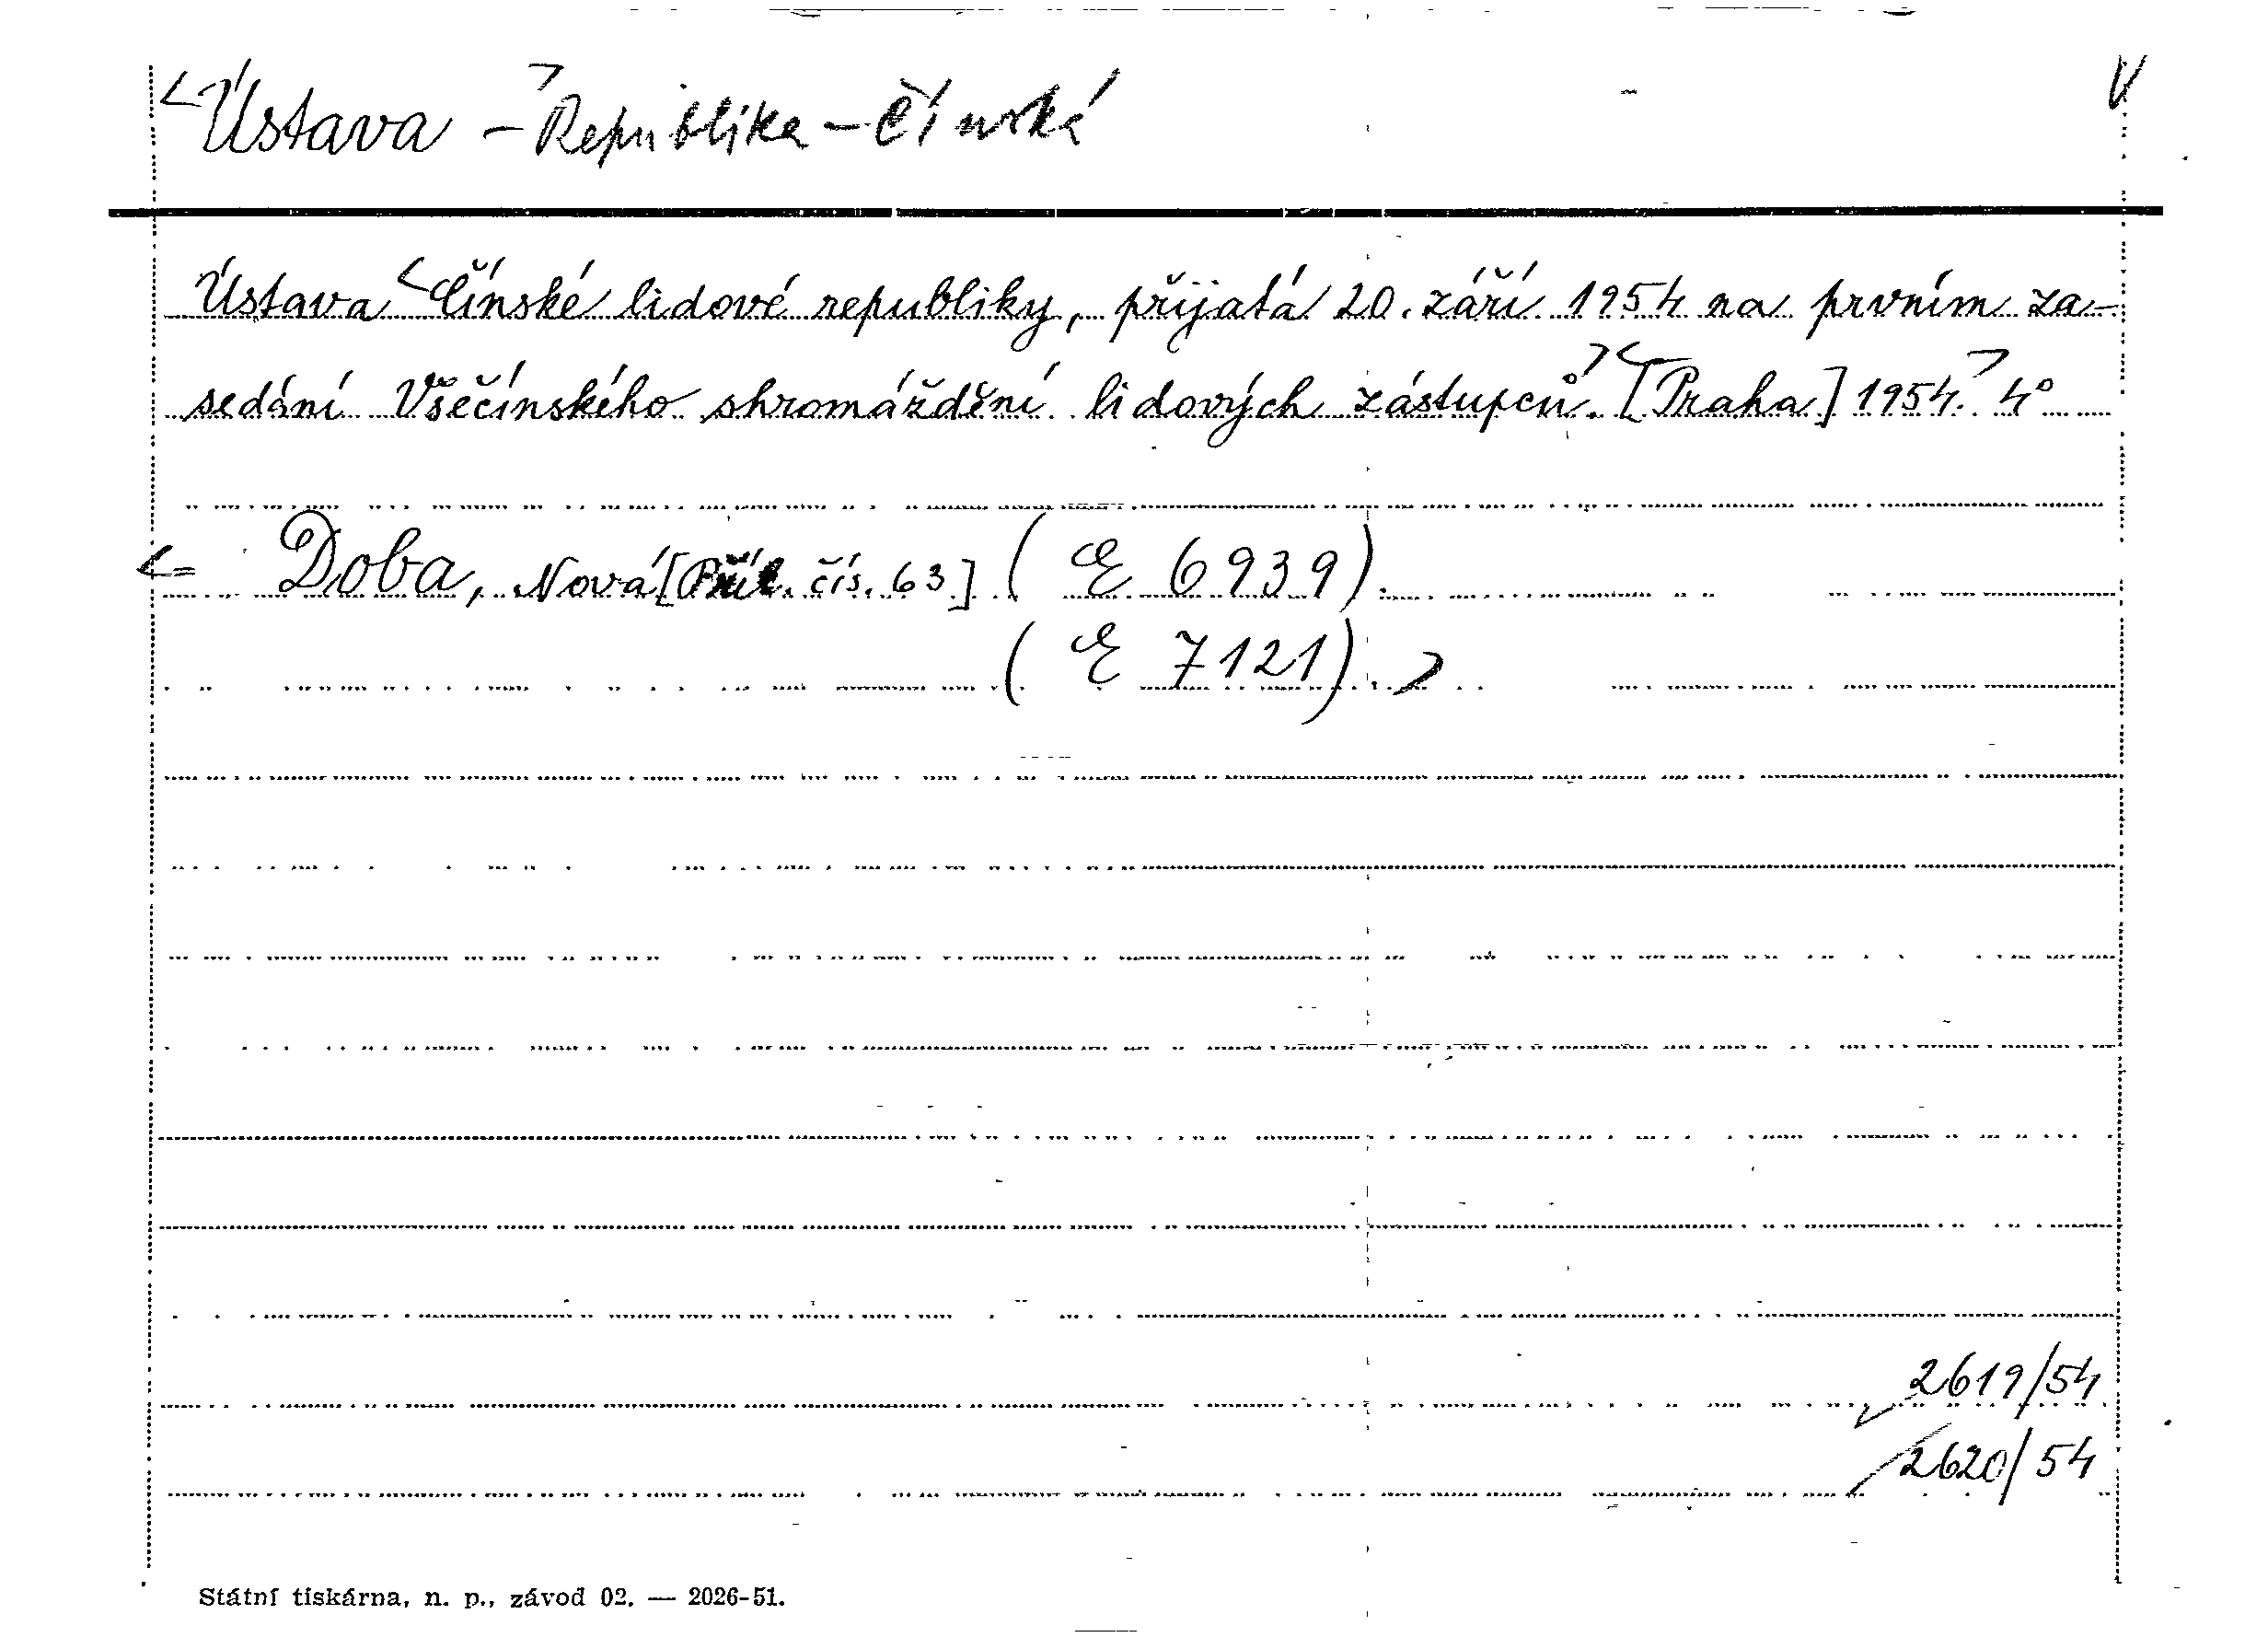 Ústava - Republika - Čínská
Ústava Čínské lidové republiky, přijatá 20. září 1954 na prvním za-
sedání Všečínského shromáždění lidových zástupců. [Praha] 1954. 4°
Doba, Nová [Příl. čís. 63] (E 6939).
(E 7121).
2619/54
2620/54
Státní tiskárna, n. p., závod 02. — 2026-51.